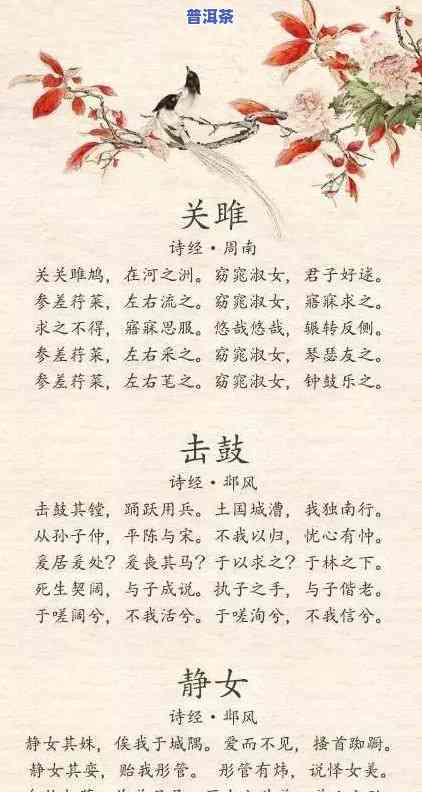 普洱茶
关雎
诗经·周南
关关雎鸠，在河之洲。窈窕淑女，君子好逑。
参差荇菜，左右流之。窈窕淑女，寤寐求之。
求之不得，寤寐思服。悠哉悠哉，辗转反侧。
参差荇菜，左右采之。窈窕淑女，琴瑟友之。
参差荇菜，左右芼之。窈窕淑女，钟鼓乐之。
击鼓
诗经·邶风
击鼓其镗，踊跃用兵。土国城漕，我独南行。
从孙子仲，平陈与宋。不我以归，忧心有忡。
爰居爰处？爰丧其马？于以求之？于林之下。
死生契阔，与子成说。执子之手，与子偕老。
于嗟阔兮，不我活兮。于嗟洵兮，不我信兮。
静女
诗经·邶风
静女其姝，俟我于城隅。爱而不见，搔首踟蹰。
静女其娈，贻我彤管。 彤管有炜，说怿女美。